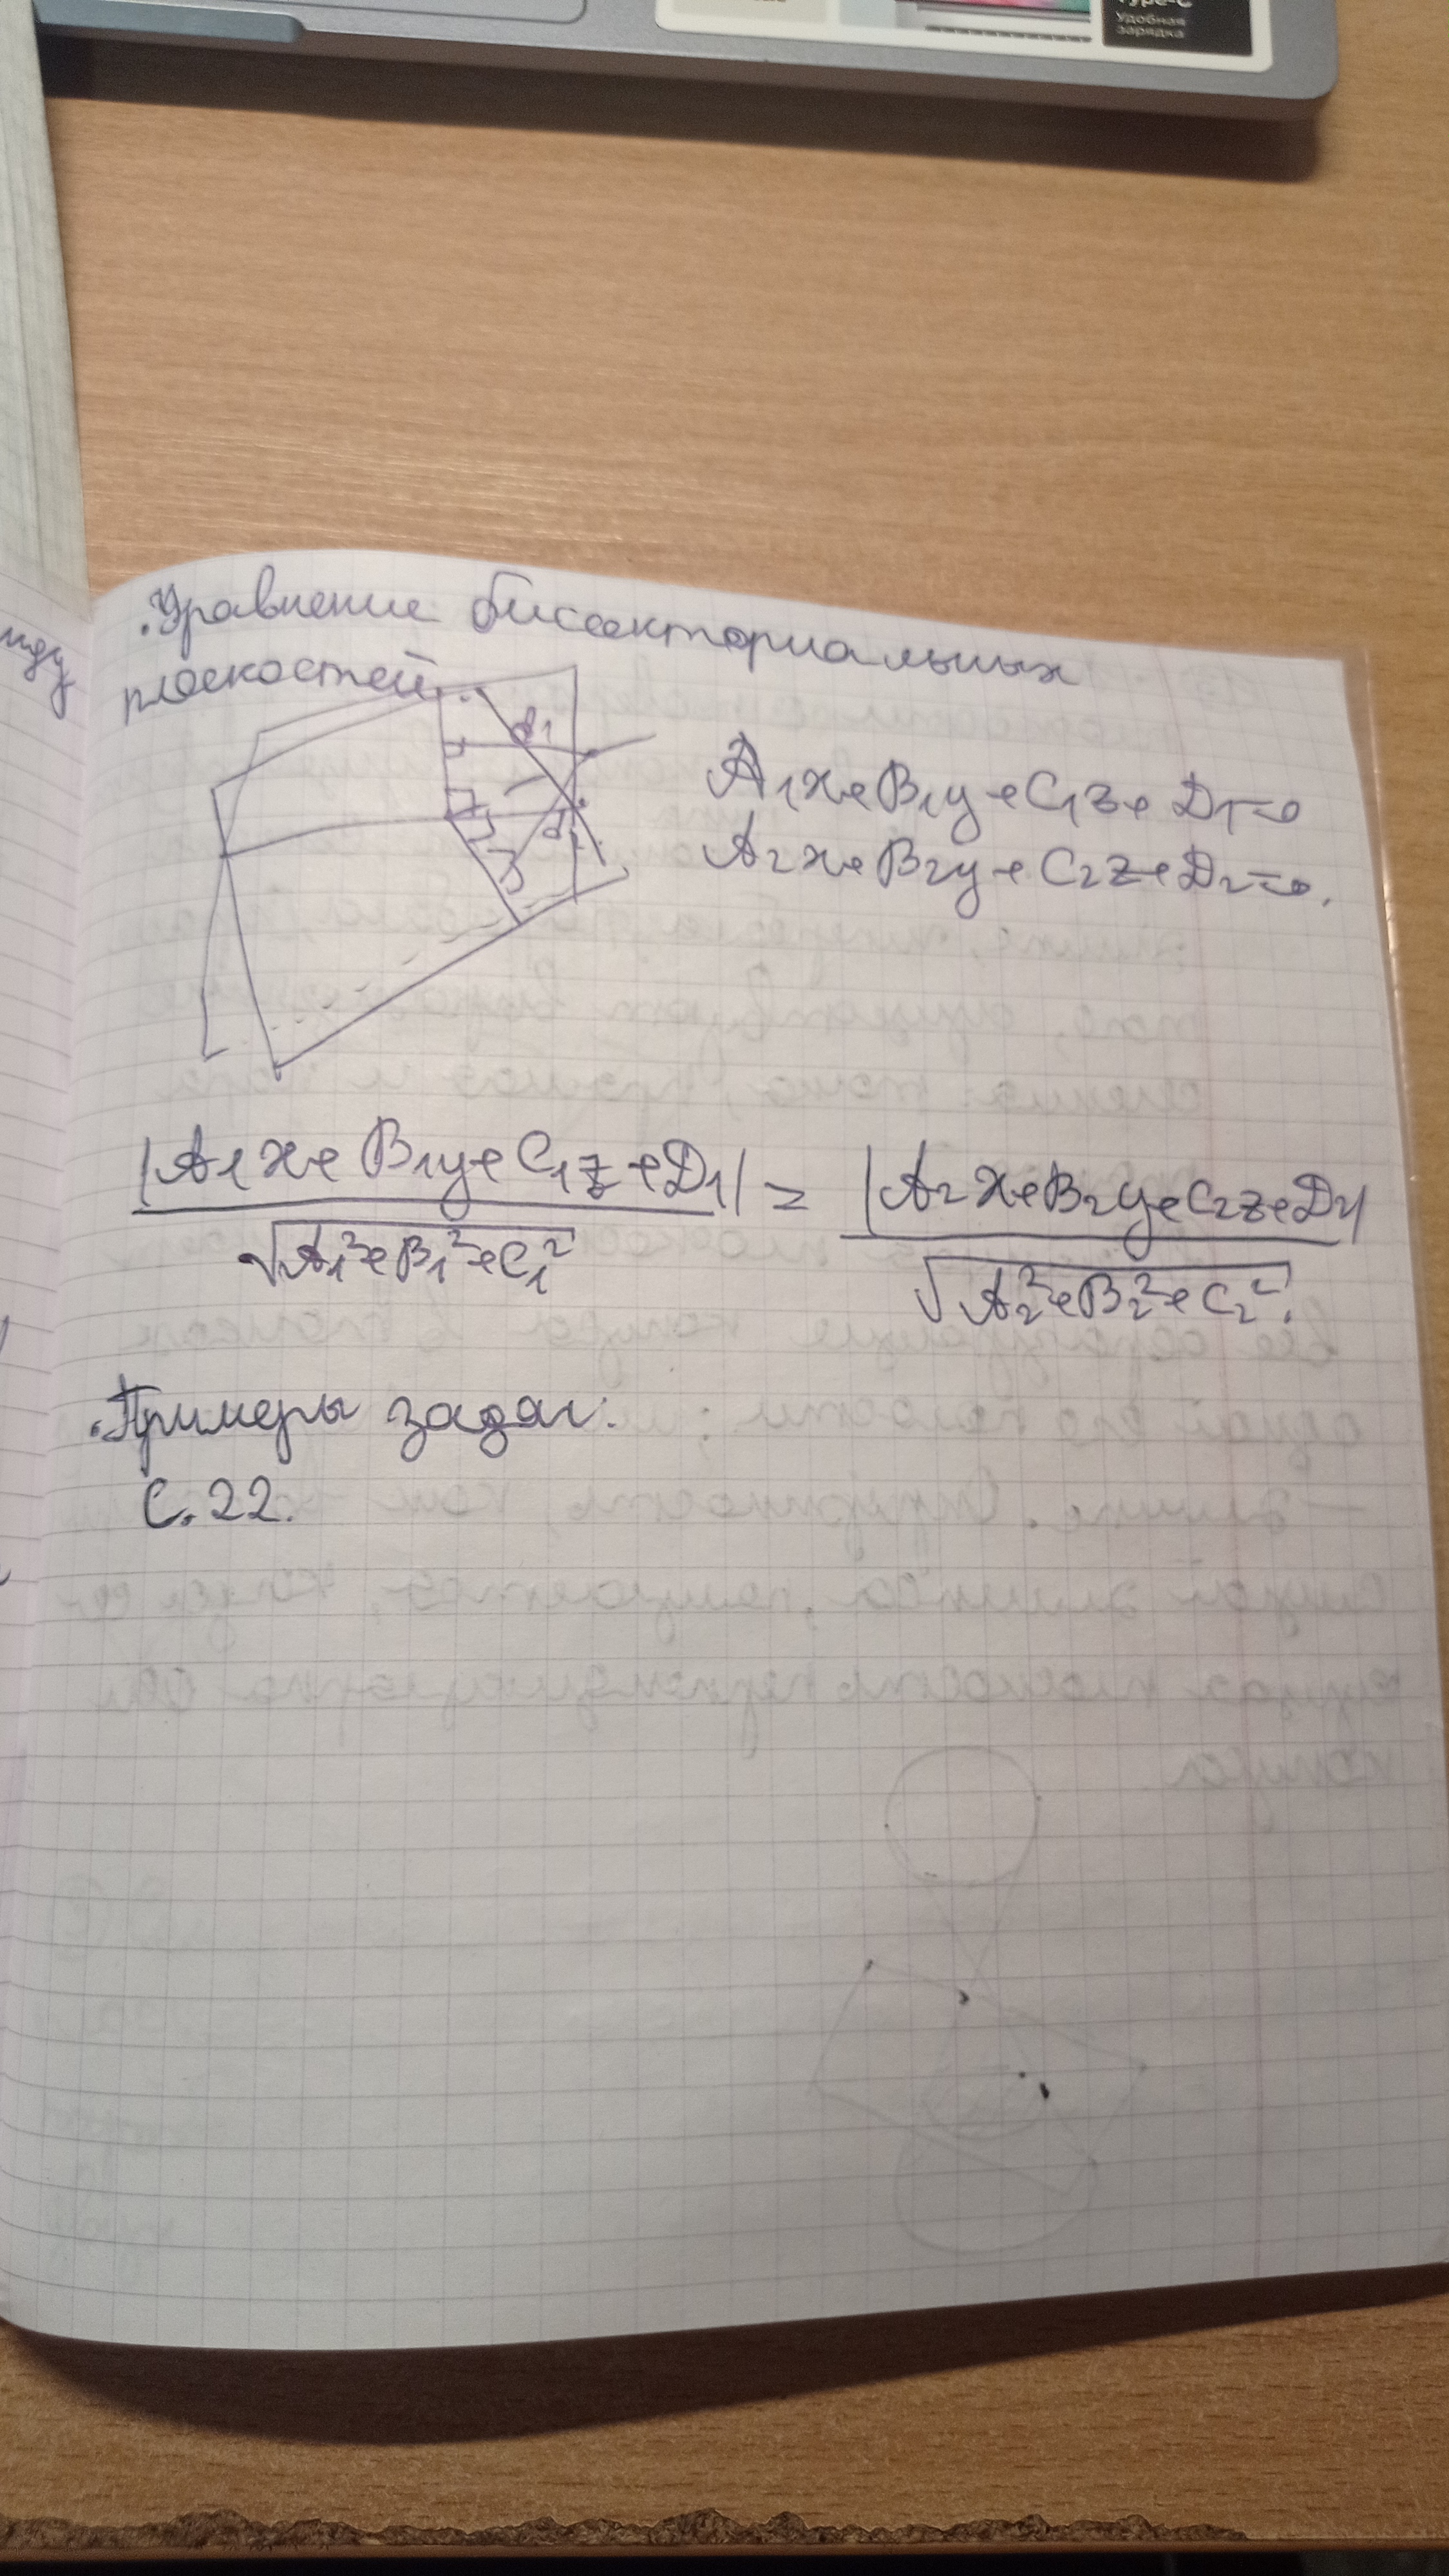 Type-C
Удобная
зарядка
.Уравнение биссекториальных
плоскостей.
d₁
A₁x+B₁y+C₁z+D₁=0
d₂
A₂x+B₂y+C₂z+D₂=0.
|A₁x+B₁y+C₁z+D₁| = |A₂x+B₂y+C₂z+D₂|
√A₁²+B₁²+C₁² √A₂²+B₂²+C₂².
.Примеры задач:
С.22.